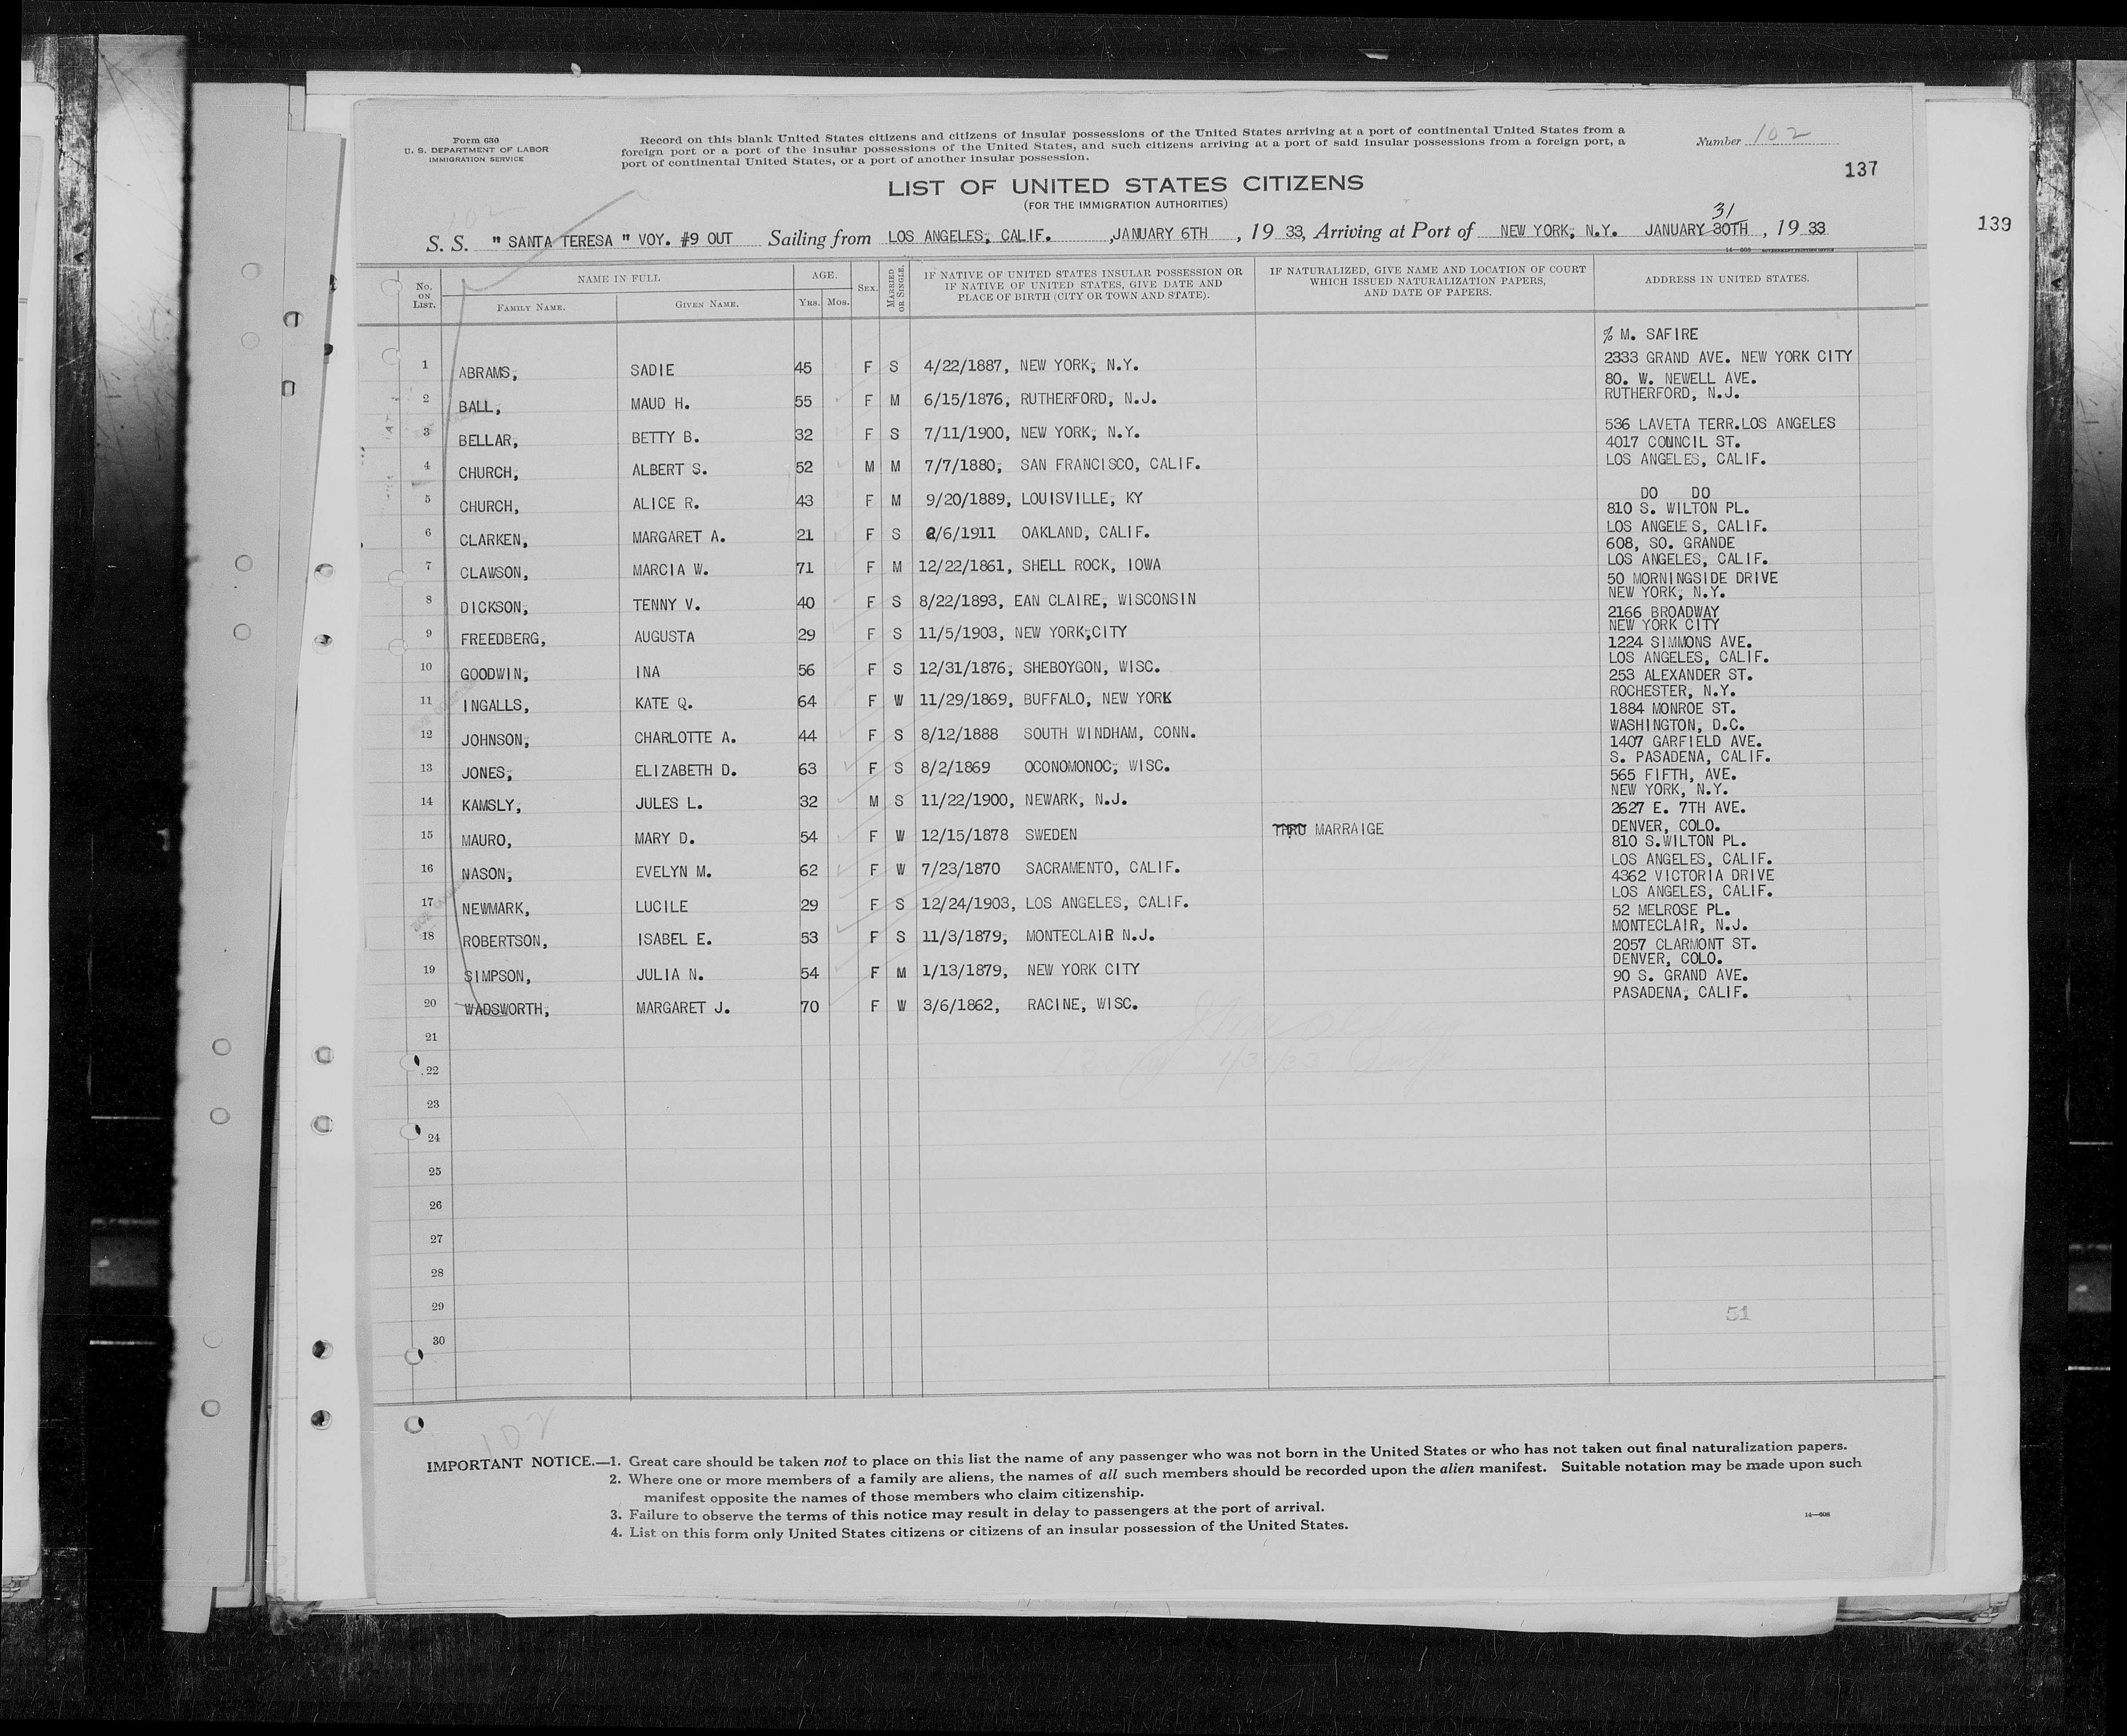 Form 630
U. S. DEPARTMENT OF LABOR
IMMIGRATION SERVICE
Record on this blank United States citizens and citizens of insular possessions of the United States arriving at a port of continental United States from a
foreign port or a port of the insular possessions of the United States, and such citizens arriving at a port of said insular possessions from a foreign port, a
port of continental United States, or a port of another insular possession.
Number 102
137
139
LIST OF UNITED STATES CITIZENS
(FOR THE IMMIGRATION AUTHORITIES)
31
S. S. " SANTA TERESA " VOY. #9 OUT Sailing from LOS ANGELES, CALIF. ,JANUARY 6TH , 19 33, Arriving at Port of NEW YORK, N.Y. JANUARY 30TH , 19 33
No. ON LIST.
NAME IN FULL
FAMILY NAME. GIVEN NAME.
AGE.
YRS. MOS.
SEX.
MARRIED OR SINGLE.
IF NATIVE OF UNITED STATES INSULAR POSSESSION OR
IF NATIVE OF UNITED STATES, GIVE DATE AND
PLACE OF BIRTH (CITY OR TOWN AND STATE).
IF NATURALIZED, GIVE NAME AND LOCATION OF COURT
WHICH ISSUED NATURALIZATION PAPERS,
AND DATE OF PAPERS.
ADDRESS IN UNITED STATES.
% M. SAFIRE
1 ABRAMS, SADIE 45 F S 4/22/1887, NEW YORK, N.Y. 2333 GRAND AVE. NEW YORK CITY
80. W. NEWELL AVE.
2 BALL, MAUD H. 55 F M 6/15/1876, RUTHERFORD, N.J. RUTHERFORD, N.J.
3 BELLAR, BETTY B. 32 F S 7/11/1900, NEW YORK, N.Y. 536 LAVETA TERR.LOS ANGELES
4017 COUNCIL ST.
4 CHURCH, ALBERT S. 52 M M 7/7/1880, SAN FRANCISCO, CALIF. LOS ANGELES, CALIF.
5 CHURCH, ALICE R. 43 F M 9/20/1889, LOUISVILLE, KY DO DO
810 S. WILTON PL.
6 CLARKEN, MARGARET A. 21 F S /6/1911 OAKLAND, CALIF. LOS ANGELES, CALIF.
608, SO. GRANDE
7 CLAWSON, MARCIA W. 71 F M 12/22/1861, SHELL ROCK, IOWA LOS ANGELES, CALIF.
50 MORNINGSIDE DRIVE
8 DICKSON, TENNY V. 40 F S 8/22/1893, EAN CLAIRE, WISCONSIN NEW YORK, N.Y.
2166 BROADWAY
9 FREEDBERG, AUGUSTA 29 F S 11/5/1903, NEW YORK,CITY NEW YORK CITY
1224 SIMMONS AVE.
10 GOODWIN, INA 56 F S 12/31/1876, SHEBOYGON, WISC. LOS ANGELES, CALIF.
253 ALEXANDER ST.
11 INGALLS, KATE Q. 64 F W 11/29/1869, BUFFALO, NEW YORK ROCHESTER, N.Y.
1884 MONROE ST.
12 JOHNSON, CHARLOTTE A. 44 F S 8/12/1888 SOUTH WINDHAM, CONN. WASHINGTON, D.C.
1407 GARFIELD AVE.
13 JONES, ELIZABETH D. 63 F S 8/2/1869 OCONOMONOC, WISC. S. PASADENA, CALIF.
565 FIFTH, AVE.
14 KAMSLY, JULES L. 32 M S 11/22/1900, NEWARK, N.J. NEW YORK, N.Y.
2627 E. 7TH AVE.
15 MAURO, MARY D. 54 F W 12/15/1878 SWEDEN THRU MARRAIGE DENVER, COLO.
810 S.WILTON PL.
16 NASON, EVELYN M. 62 F W 7/23/1870 SACRAMENTO, CALIF. LOS ANGELES, CALIF.
4362 VICTORIA DRIVE
17 NEWMARK, LUCILE 29 F S 12/24/1903, LOS ANGELES, CALIF. LOS ANGELES, CALIF.
52 MELROSE PL.
18 ROBERTSON, ISABEL E. 53 F S 11/3/1879, MONTECLAIR N.J. MONTECLAIR, N.J.
2057 CLARMONT ST.
19 SIMPSON, JULIA N. 54 F M 1/13/1879, NEW YORK CITY DENVER, COLO.
90 S. GRAND AVE.
20 WADSWORTH, MARGARET J. 70 F W 3/6/1862, RACINE, WISC. PASADENA, CALIF.
21
22
1/31/33
23
24
25
26
27
28
29
51
30
102
IMPORTANT NOTICE.—1. Great care should be taken not to place on this list the name of any passenger who was not born in the United States or who has not taken out final naturalization papers.
2. Where one or more members of a family are aliens, the names of all such members should be recorded upon the alien manifest. Suitable notation may be made upon such
manifest opposite the names of those members who claim citizenship.
3. Failure to observe the terms of this notice may result in delay to passengers at the port of arrival.
4. List on this form only United States citizens or citizens of an insular possession of the United States.
14—608